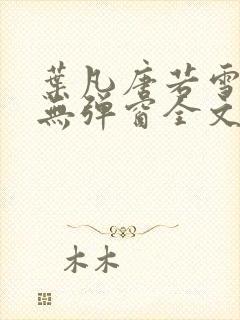 葉凡唐若雪
無彈窗全文
木木